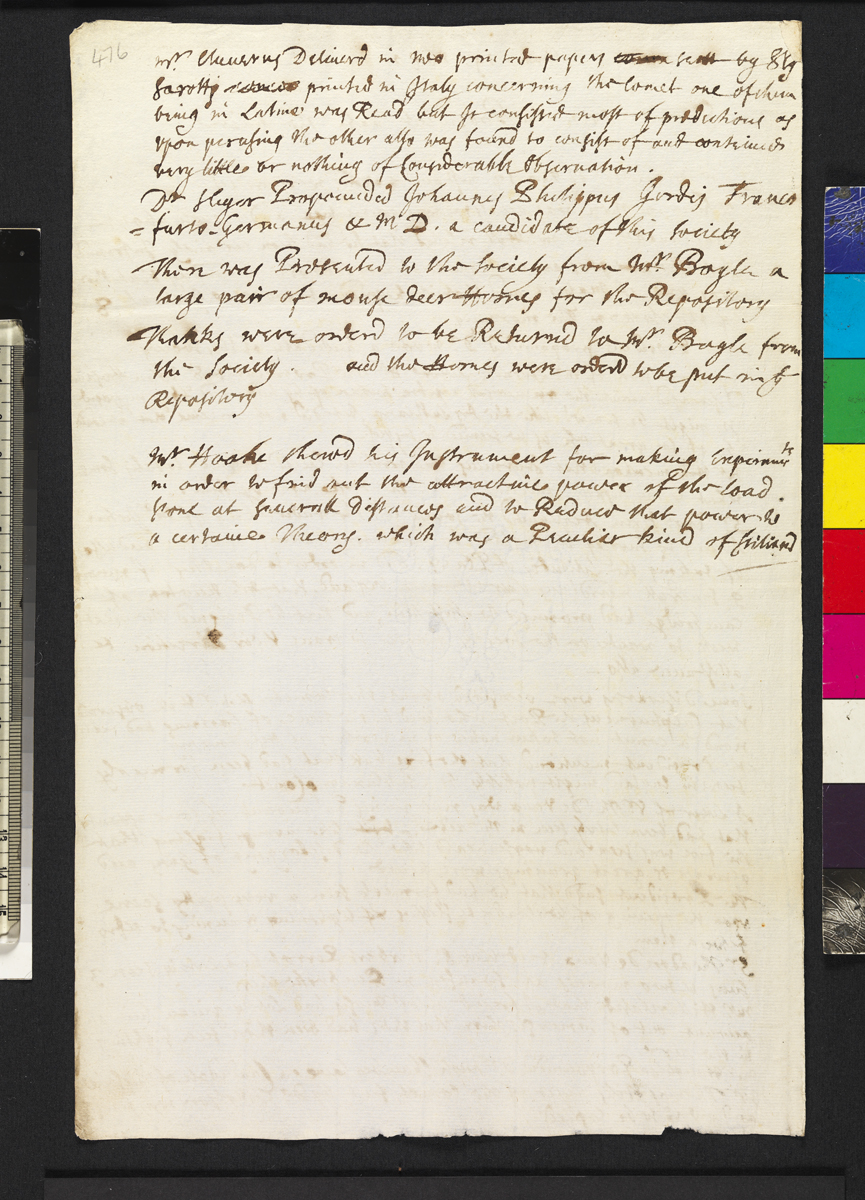 476
Mr. Cluverus Deliverd in two printed papers sent by Sg
Sarotti printed in Italy concerning the Comet one of them
being in Latine was Read but It consisted most of predictions as
upon perusing the other also was found to consist of and conteined
very little or nothing of Considerable Observation.
Dr Slegor Propounded Johannes Philippus Jordis Franco
=furto-Germanus & M D. a candidate of this Society
There was Presented to the Society from Mr. Boyle a
large pair of mouse deer Hornes for the Repository
Thankes were orderd to be Returnd to Mr. Boyle from
the Society. and the Hornes were orderd to be put in ye
Repository
Mr. Hooke shewd his Instrument for making Experimts
in order to find out the attractive power of the Load
stone at severall Distances and to Reduce that power to
a certaine Theory. which was a Peculiar kind of